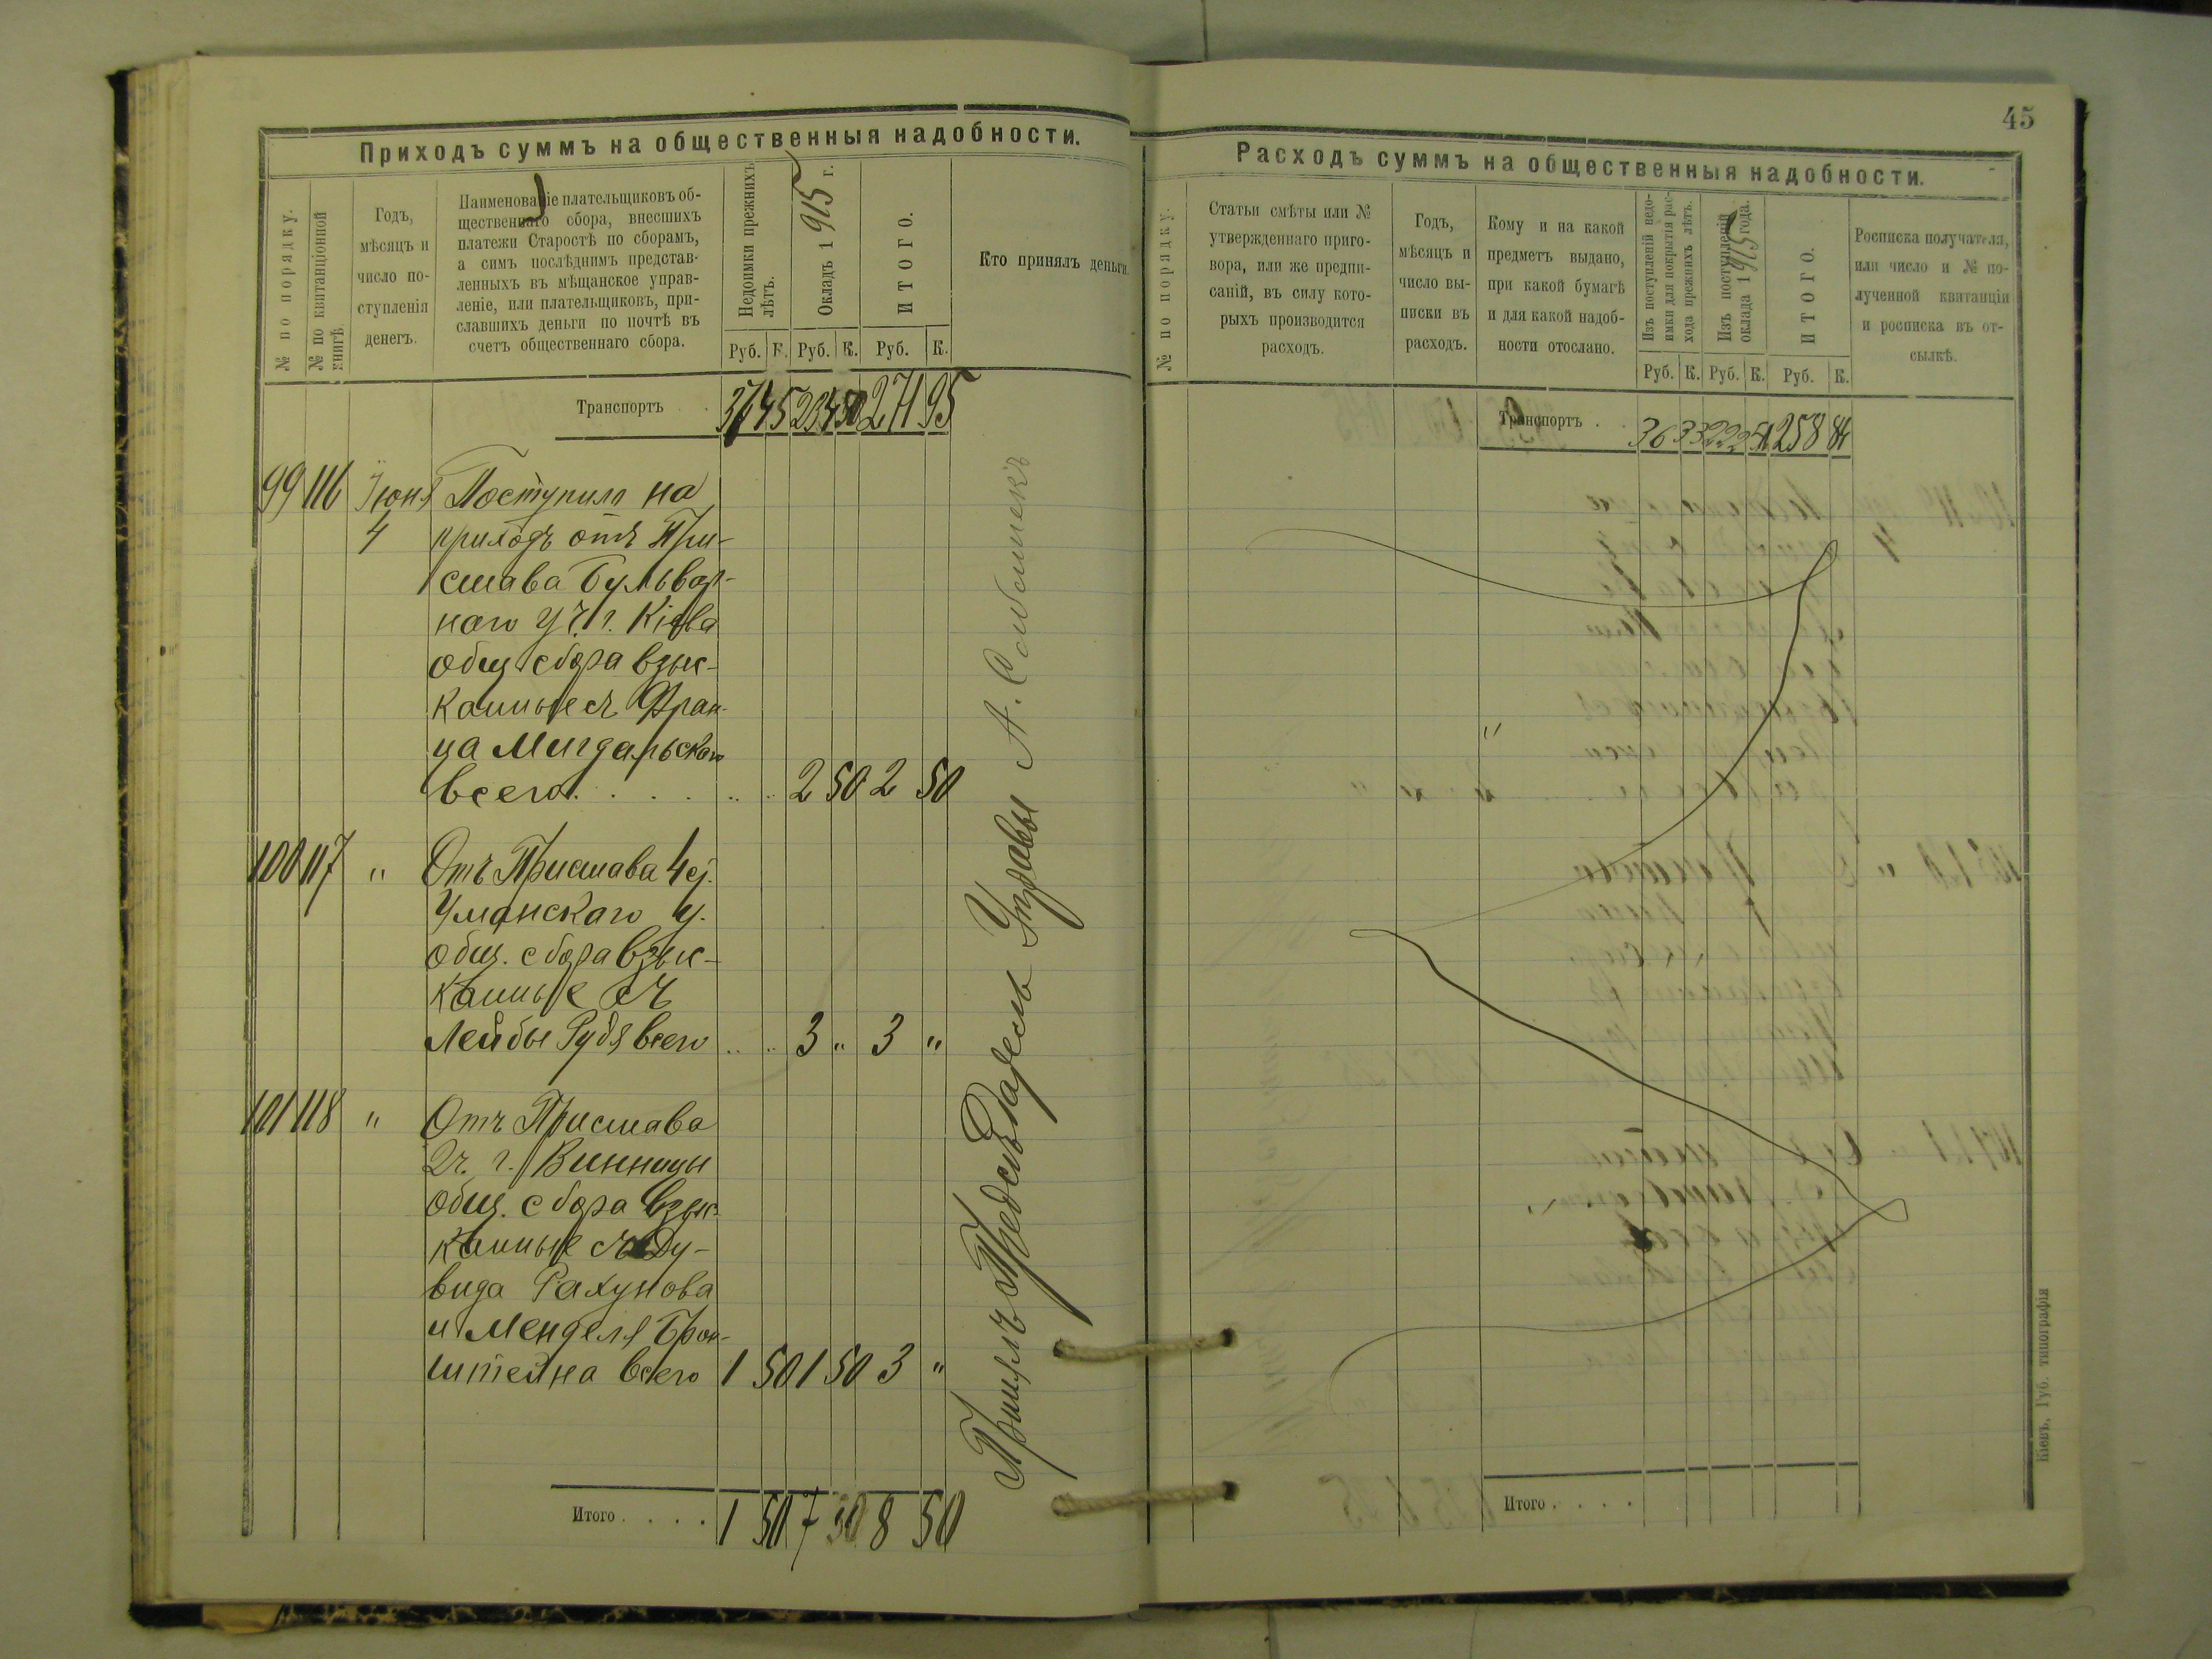 45
Приходъ суммъ на общественныя надобности.
№ по порядку.
№ по квитанціонной
книгѣ.
Годъ,
мѣсяцъ и
число по-
ступленія
денегъ.
Наименованіе плательщиковъ об-
щественнаго сбора, внесшихъ
платежи Старостѣ по сборамъ,
а симъ послѣднимъ представ-
ленныхъ въ мѣщанское управ-
леніе, или плательщиковъ, при-
славшихъ деньги по почтѣ въ
счетъ общественнаго сбора.
Недоимки прежнихъ
лѣтъ.
Окладъ 1915 г.
ИТОГО.
Кто принялъ деньги.
Руб. К. Руб. К. Руб. К.
Транспортъ . . 37 45 234 50 271 95
99 116 Іюня Поступило на
4 приходъ отъ При-
става Бульвар-
наго уч. г. Кіева
общ. сбора взыс-
канные съ Фран-
ца Мигдальскаго
всего . . . . 2 50 2 50
100 117 " Отъ Пристава 4 ст.
Уманскаго у.
общ. сбора взыс-
канные съ
Лейбы Рудя всего 3 " 3 "
101 118 " Отъ Пристава
2 ч. г. Винницы
общ. сбора взыс-
канные съ Ду-
вида Рахунова
и Менделя Брон-
штейна всего 1 50 1 50 3 "
Итого . . . . 1 50 7 8 50
Принялъ Предсѣдатель Управы А.
Расходъ суммъ на общественныя надобности.
№ по порядку.
Статьи смѣты или №
утвержденнаго приго-
вора, или же предпи-
саній, въ силу кото-
рыхъ производится
расходъ.
Годъ,
мѣсяцъ и
число вы-
писки въ
расходъ.
Кому и на какой
предметъ выдано,
при какой бумагѣ
и для какой надоб-
ности отослано.
Изъ поступленій недо-
имки для покрытія рас-
хода прежнихъ лѣтъ.
Изъ поступленій
оклада 1915 года.
ИТОГО.
Росписка получателя,
или число и № по-
лученной квитанціи
и росписка въ от-
сылкѣ.
Руб. К. Руб. К. Руб. К.
Транспортъ . . 36 33 222 51 258 84
Итого . . . .
Кіевъ, Губ. типографія